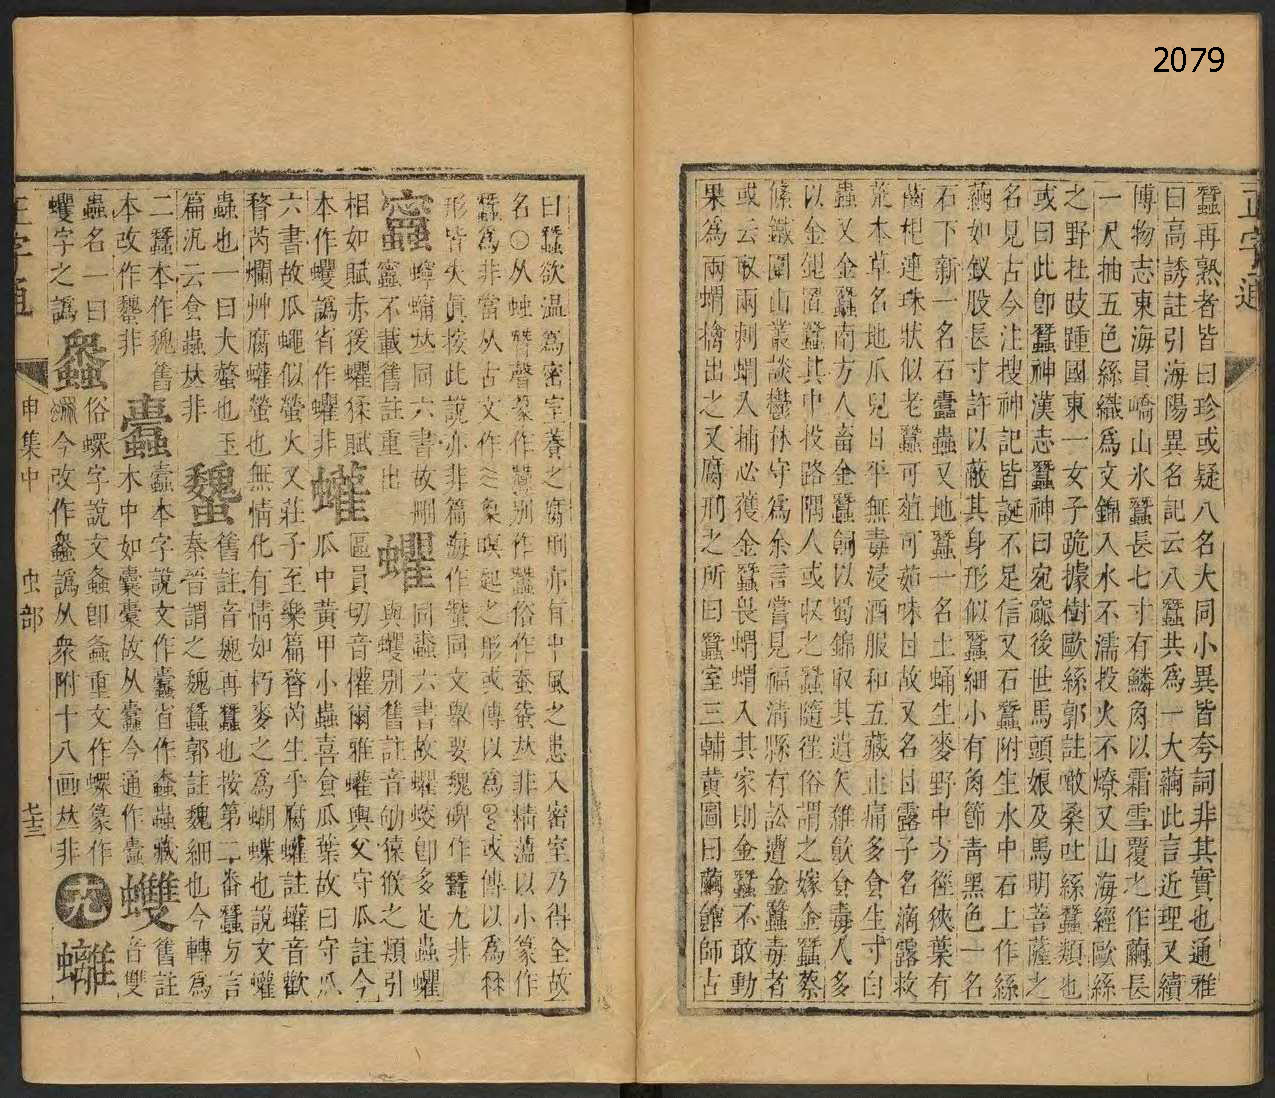 2079
正字通
蠶再熟者皆曰珍或疑八名大同小異皆夸詞非其實也通雅
曰高誘註引海陽異名記云八蠶共爲一大繭此言近理又續
博物志東海員嶠山氷蠶長七寸有鱗角以霜雪覆之作繭長
一尺抽五色絲織爲文錦入水不濡投火不燎又山海經歐絲
之野在歧踵國東一女子跪據樹歐絲郭註噉桑吐絲蠶類也
或曰此卽蠶神漢志蠶神曰宛窳後世馬頭娘及馬明菩薩之
名見古今注搜神記皆誕不足信又石蠶附生水中石上作絲
繭如釵股長寸許以蔽其身形似蠶細小有角節靑黑色一名
石下新一名石蠹蟲又地蠶一名土蛹生麥野中方徑狹葉有
齒根連珠狀似老蠶可葅可茹味甘故又名甘露子名滴露救
荒本草名地瓜兒甘平無毒浸酒服和五藏止痛多食生寸白
蟲又金蠶南方人畜金蠶飼以蜀錦取其遺矢雜飮食毒人多
以金銀置蠶其中投路隅人或收之蠶隨徃俗謂之嫁金蠶蔡
絛鐵圍山叢談鬱林守爲余言嘗見福淸縣有訟遭金蠶毒者
或云取兩刺蝟入捕必獲金蠶畏蝟蝟入其家則金蠶不敢動
果爲兩蝟擒出之又腐刑之所曰蠶室三輔黃圖曰繭館師古
曰蠶欲温爲密室養之腐刑亦有中風之患入密室乃得全故
名○从䖵朁聲篆作蠶别作蠺俗作蚕蝅𠀤非精薀以小篆作
蠶爲非當从古文作𡿨象瞑起之形或傳以爲或傳以爲𣏟
形皆失眞按此說亦非篇海作蠶同文擧要魏碑作蠶尤非
蠠𧖅不載舊註重出
蠷同蠭六書故蠷螋卽多足蟲蠷
相如賦赤猨蠷猱賦
與玃别舊註音劬猿猴之類引
本作蠼譌省作蠷非
蠸區員切音權爾雅蠸輿父守瓜註今
瓜中黃甲小蟲喜食瓜葉故曰守瓜
六書故瓜蠅似螢火又莊子至樂篇瞀芮生乎腐蠸註蠸音歡
瞀芮爛艸腐蠸螢也無情化有情如朽麥之爲蝴蝶也說文蠸
蟲也一曰大螫也玉
篇沉云食蟲𠀤非
舊註音魏再蠶也按第二番蠶方言
秦晉謂之魏蠶郭註魏細也今轉爲
二蠶本作魏舊
本改作䗽非
蠹蠹本字說文作蠹省作螙蟲藏
木中如囊橐故从橐今通作蠹
蠼舊註
音雙
蟲名一曰
蠼字之譌
蠡俗螺字說文螽卽螽重文作螺篆作
今改作蠡譌从衆附十八画𠀤非
十九
蠵
正字通
申集中
虫部
七十三